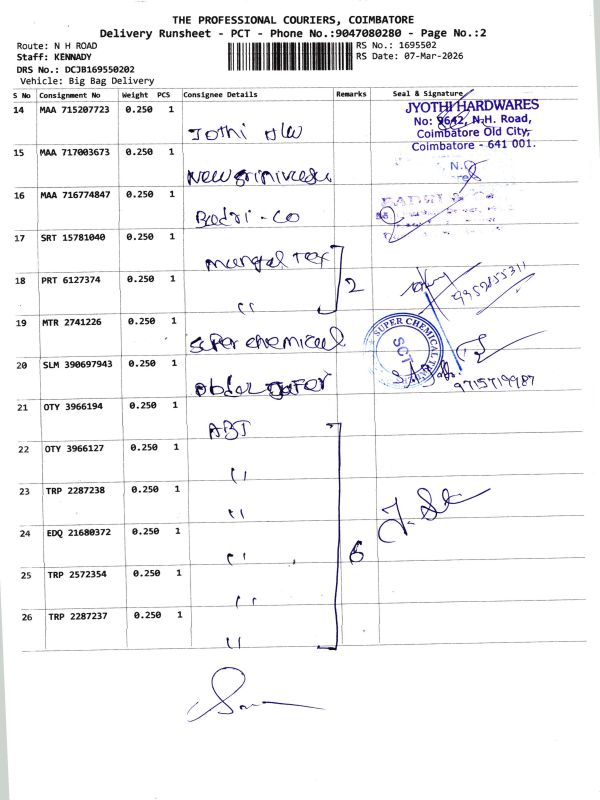 THE PROFESSIONAL COURIERS, COIMBATORE
Delivery Runsheet - PCT - Phone No.:9047080280 - Page No.:2
Route: N H ROAD
RS No.: 1695502
Staff: KENNADY
RS Date: 07-Mar-2026
DRS No.: DCJB169550202
Vehicle: Big Bag Delivery
S No Consignment No Weight PCS Consignee Details Remarks Seal & Signature
14 MAA 715207723 0.250 1 Jothi H/W
JYOTHI HARDWARES
No: 9642, N.H. Road,
Coimbatore Old City,
Coimbatore - 641 001.
15 MAA 717003673 0.250 1
16 MAA 716774847 0.250 1 Badri - Co
17 SRT 15781040 0.250 1 mangal Tex
18 PRT 6127374 0.250 1 " 2
9952155311
19 MTR 2741226 0.250 1 super chemical
SUPER CHEMICAL
SCT
20 SLM 390697943 0.250 1
9715719987
21 OTY 3966194 0.250 1 ABT
22 OTY 3966127 0.250 1 "
23 TRP 2287238 0.250 1 "
24 EDQ 21680372 0.250 1 " 6
25 TRP 2572354 0.250 1 "
26 TRP 2287237 0.250 1 "